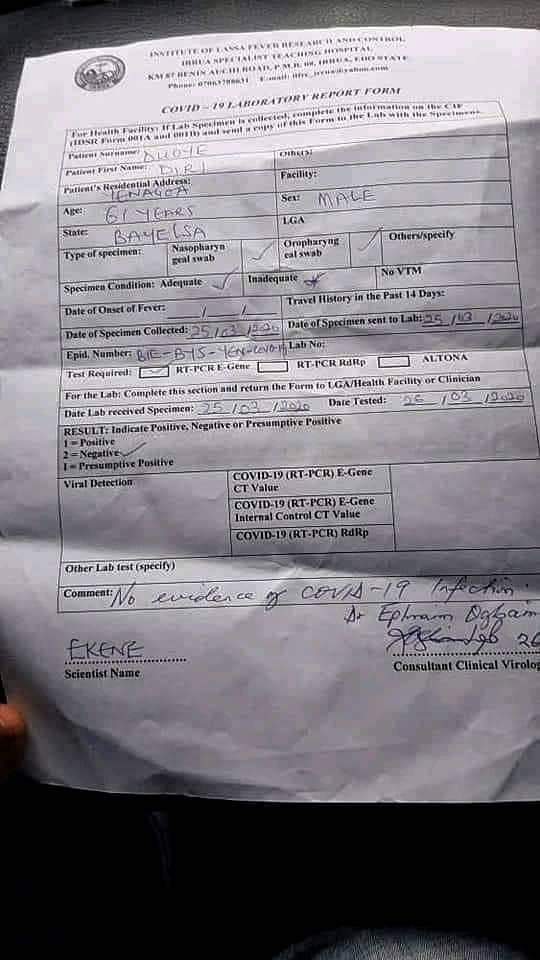 INSTITUTE OF LASSA FEVER RESEARCH AND CONTROL
IRRUA SPECIALIST TEACHING HOSPITAL
KM 87 BENIN AUCHI ROAD, P.M.B. 08, IRRUA, EDO STATE.
Phone: E-mail:
COVID – 19 LABORATORY REPORT FORM
For Health Facility: If Lab Specimen is collected, complete the information on the CIF
(IDSR Form 001A and 001B) and send a copy of this Form to the Lab with the Specimens.
Patient Surname: DUOYE Others:
Patient First Name: DIRI Facility:
Patient's Residential Address: YENAGOA
Age: 61 YEARS Sex: MALE
State: BAYELSA LGA
Type of specimen: Nasopharyn geal swab Oropharyng eal swab Others/specify
Specimen Condition: Adequate Inadequate No VTM
Date of Onset of Fever: / / Travel History in the Past 14 Days:
Date of Specimen Collected: 25/03/2020 Date of Specimen sent to Lab: 25/03/2020
Epid. Number: Lab No:
Test Required: RT-PCR E-Gene RT-PCR RdRp ALTONA
For the Lab: Complete this section and return the Form to LGA/Health Facility or Clinician
Date Lab received Specimen: 25/03/2020 Date Tested: 26/03/2020
RESULT: Indicate Positive, Negative or Presumptive Positive
1 = Positive
2 = Negative
1 = Presumptive Positive
Viral Detection
COVID-19 (RT-PCR) E-Gene
CT Value
COVID-19 (RT-PCR) E-Gene
Internal Control CT Value
COVID-19 (RT-PCR) RdRp
Other Lab test (specify)
Comment: No evidence of COVID-19 Infection.
Dr Ephraim
26
EKENE
Scientist Name
Consultant Clinical Virolog